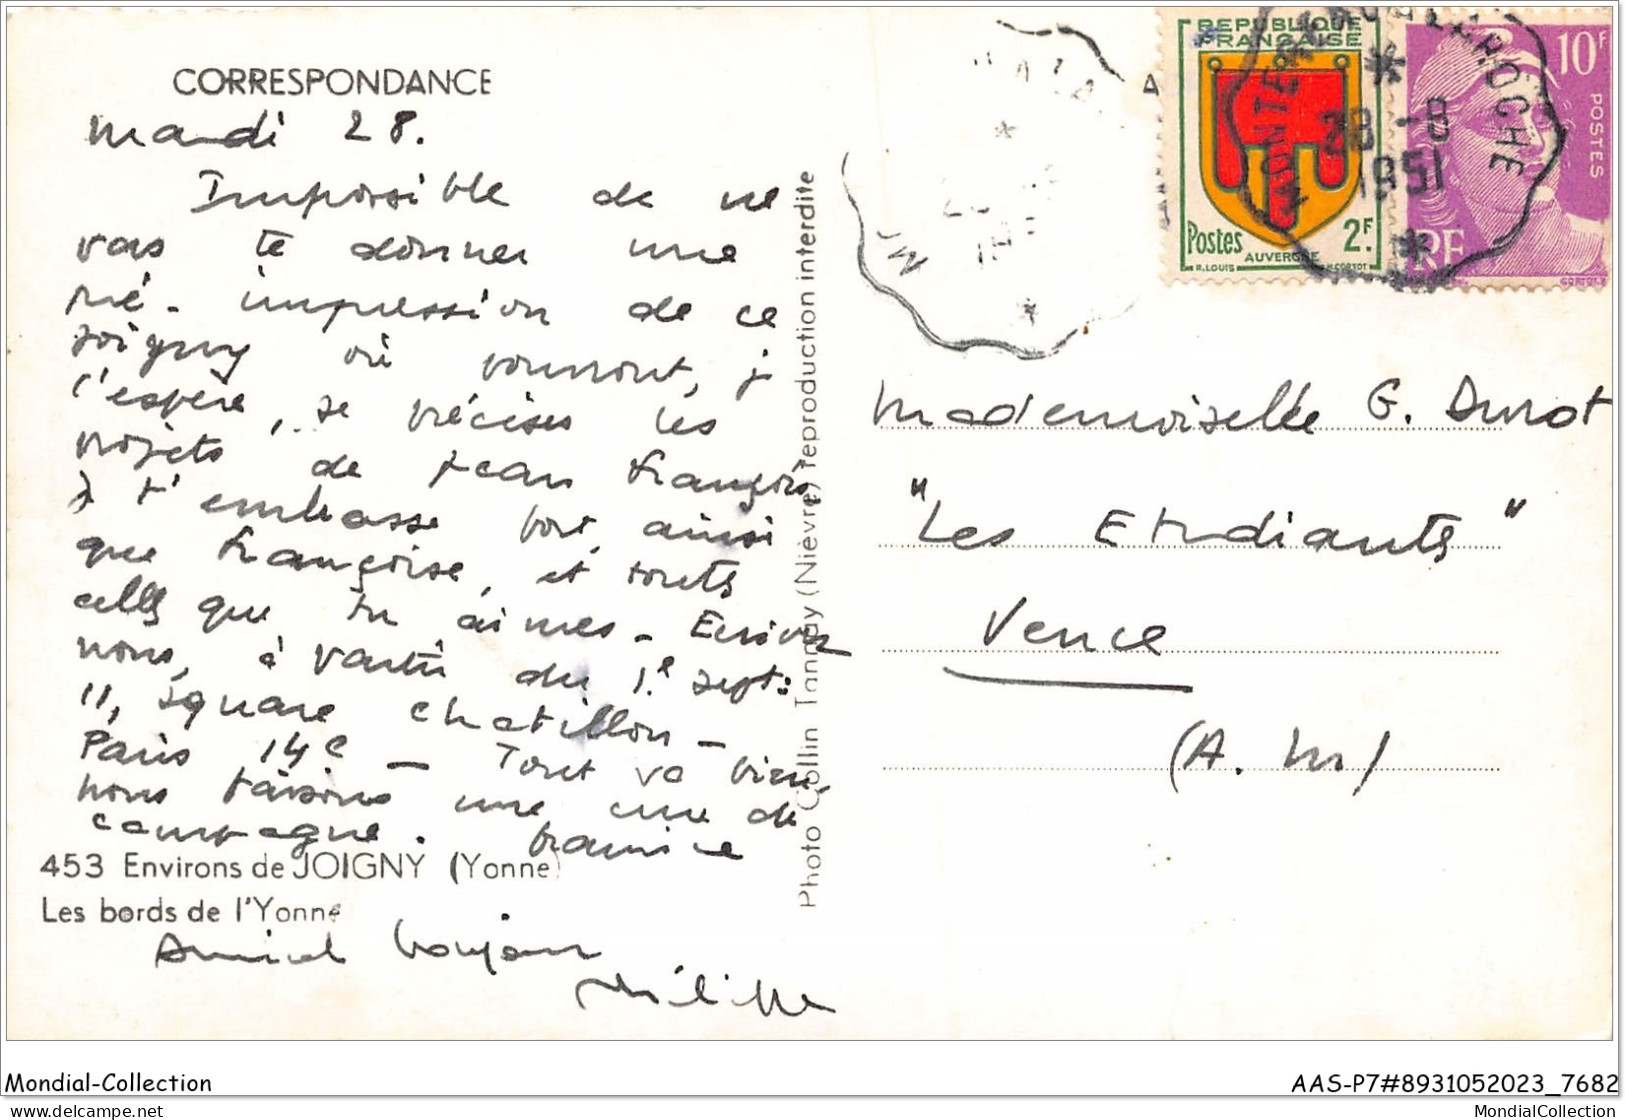 CORRESPONDANCE
mardi 28.
Impossible de ne
pas te donner une
pré. impression de ce
Joigny où
l'espère, se préciser les
projets de Jean François.
Je t'embrasse fort, ainsi
que Françoise, et toutes
celles que tu aimes - Ecrivez
nous, à partir du 1er sept:
11, square Chatillon -
Paris 14e - Tout va bien,
nous faisons une cure de
campagne.
453 Environs de JOIGNY (Yonne)
Les bords de l'Yonne
Amical bonjour
Philippe
Photo Collin Tannay (Nièvre) reproduction interdite
REPUBLIQUE
FRANÇAISE
Postes 2F.
AUVERGNE
R. LOUIS
CORTOT
10F
POSTES
RF
28-8
1951
Mademoiselle G. Durot
"Les Etudiants"
Vence
(A. M)
Mondial-Collection
AAS-P7#8931052023_7682
https://www.delcampe.net/fr/collections/store/MondialCollection